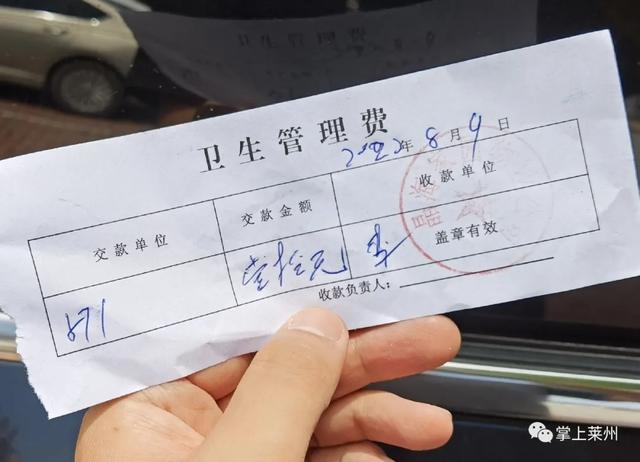 卫生管理费
2022年8月9日
交款单位 交款金额 收款单位
871 壹拾元整 盖章有效
收款负责人：
掌上莱州